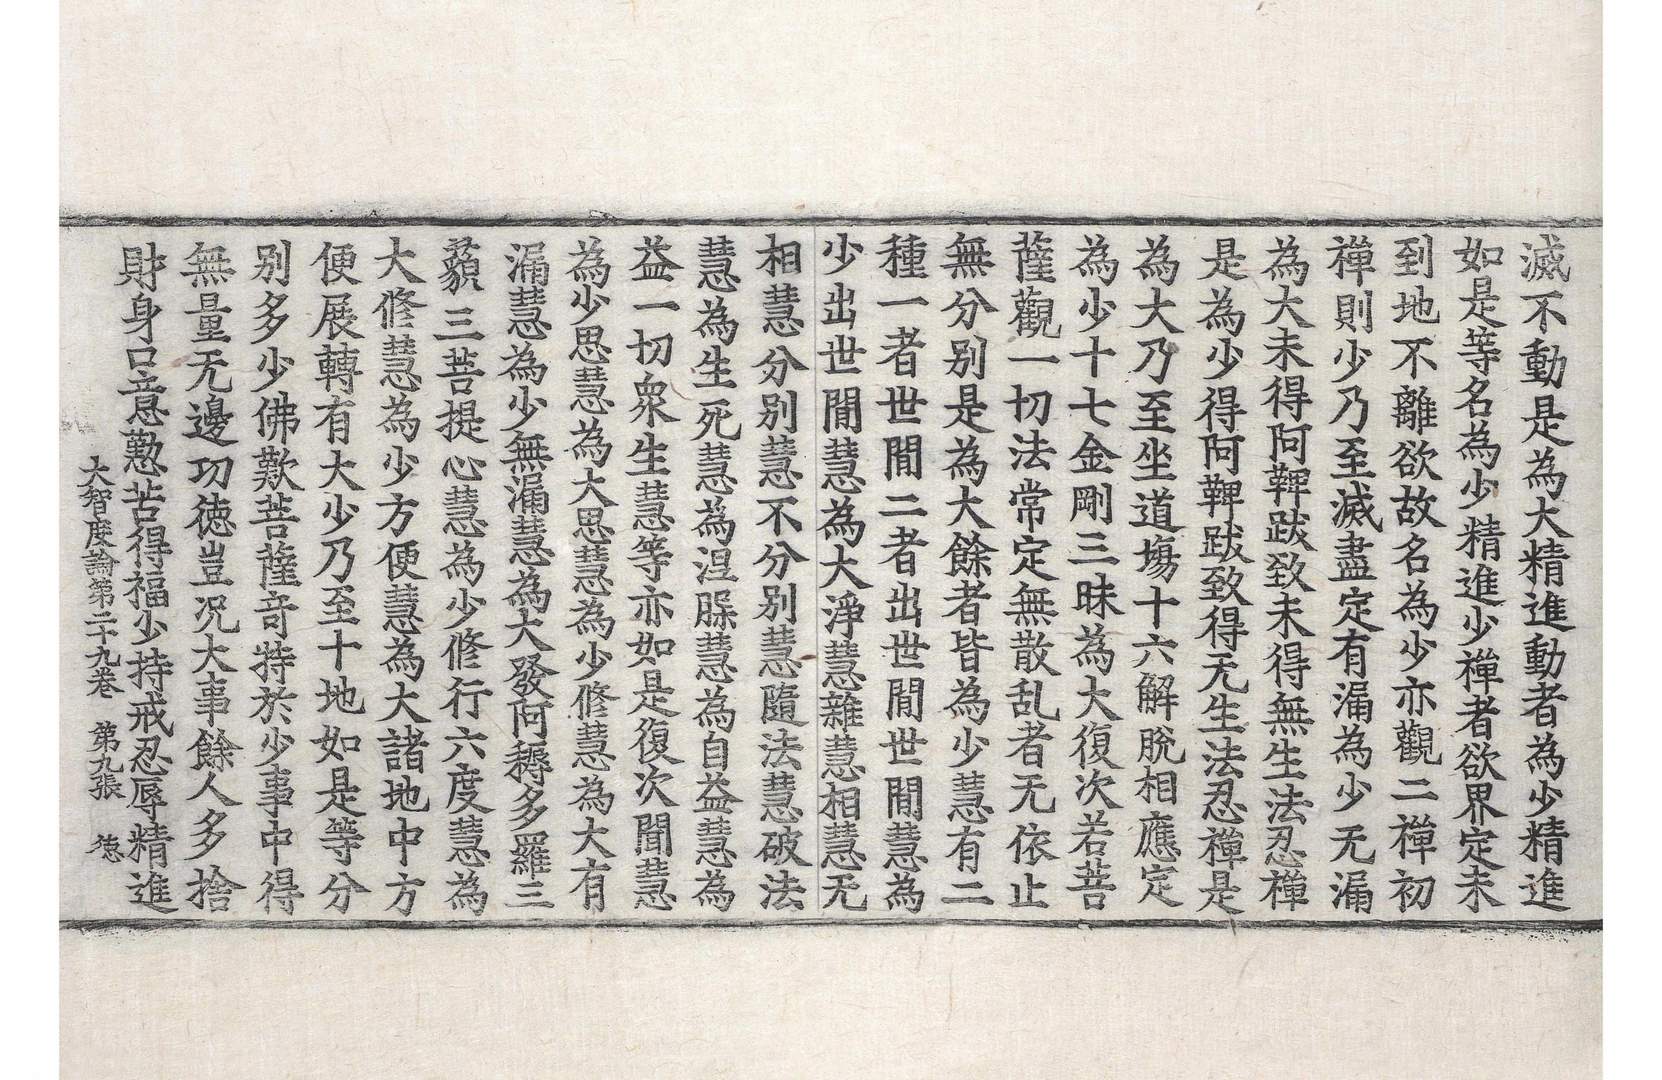 滅不動是為大精進動者為少精進
如是等名為少精進少禪者欲界定未
到地不離欲故名為少亦觀二禪初
禪則少乃至滅盡定有漏為少无漏
為大未得阿鞞跋致未得無生法忍禪
是為少得阿鞞跋致得无生法忍禪是
為大乃至坐道場十六解脫相應定
為少十七金剛三昧為大復次若菩
薩觀一切法常定無散乱者无依止
無分別是為大餘者皆為少慧有二
種一者世閒二者出世閒世閒慧為
少出世閒慧為大淨慧雜慧相慧无
相慧分別慧不分別慧隨法慧破法
慧為生死慧為涅槃慧為自益慧為
益一切衆生慧等亦如是復次聞慧
為少思慧為大思慧為少修慧為大有
漏慧為少無漏慧為大發阿耨多羅三
藐三菩提心慧為少修行六度慧為
大修慧為少方便慧為大諸地中方
便展轉有大少乃至十地如是等分
別多少佛歎菩薩奇特於少事中得
無量无邊功徳豈况大事餘人多捨
財身口意懃苦得福少持戒忍辱精進
大智度論第二十九卷 第九張 徳